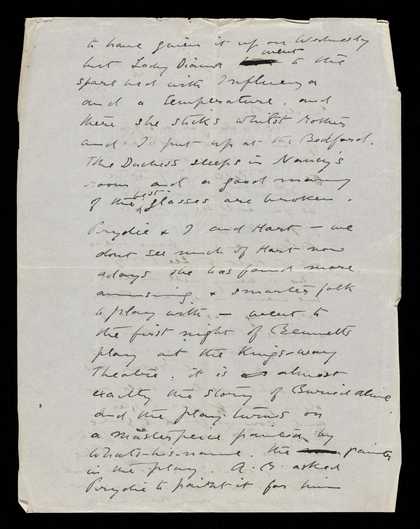 to have given it up on Wednesday
but Lady Diana went to the
spare bed with Influenza
and a temperature and
there she sticks whilst
and I put up at the Bedford.
The Duchess sleeps in Nancy's
room and a good many
of the best glasses are broken.
Prydie & I and Hart – we
dont see much of Hart now
adays she has found more
amusing & smarter folk
to play with – went to
the first night of Bennetts
play at the Kingsway
Theatre. it is almost
exactly the story of Buried alive
and the play turns on
a masterpiece painted by
Whats-his-name. the painter
in the play. A.B. asked
Prydie to paint it for him